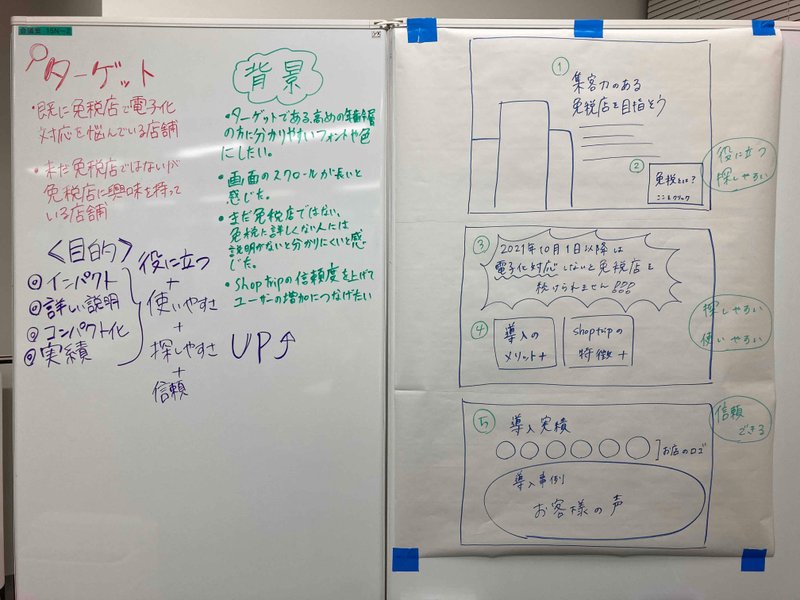 ターゲット
・既に免税店で電子化
対応を悩んでいる店舗
・まだ免税店ではないが
免税店に興味を持って
いる店舗
背景
・ターゲットである、高めの年齢層
の方に分かりやすいフォントや色
にしたい。
・画面のスクロールが長いと
感じた。
・まだ免税店ではない、
免税に詳しくない人には
説明がないと分かりにくいと感
じた。
・Shoptripの信頼度を上げて
ユーザーの増加につなげたい
<目的>
◎インパクト
◎詳しい説明
◎コンパクト化
◎実績
役に立つ
+
使いやすさ
+
探しやすさ
+
信頼
UP↑
①
集客力のある
免税店を目指そう
②
免税とは?
ここをクリック
役に立つ
探しやすい
③
2021年10月1日以降は
電子化対応しないと免税店を
続けられません!!!
④
導入の
メリット+
shoptripの
特徴+
探しやすい
使いやすい
⑤
導入実績
お店のロゴ
導入事例
お客様の声
信頼
できる